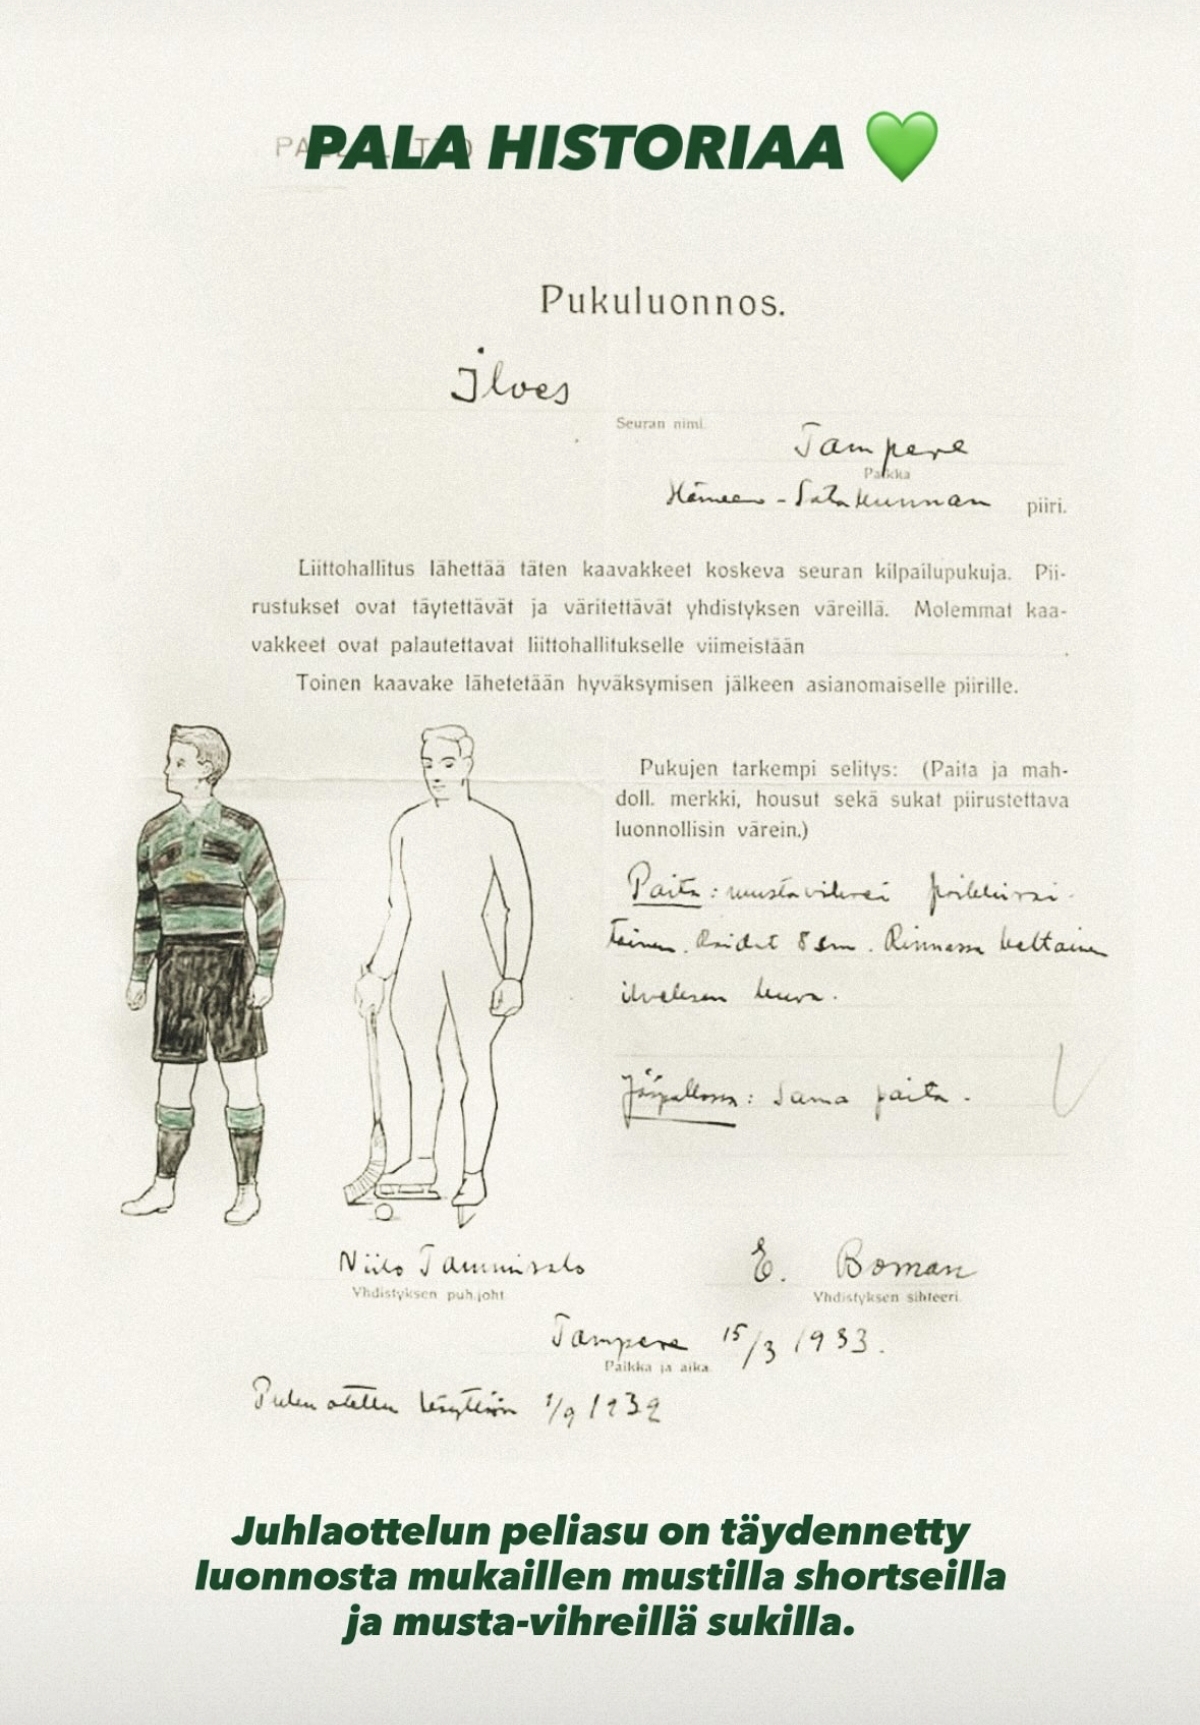 PALA HISTORIAA 💚
Pukuluonnos.
Ilves
Seuran nimi.
Tampere
Paikka
Hämeen-Satakunnan piiri.
Liittohallitus lähettää täten kaavakkeet koskeva seuran kilpailupukuja. Pii-
rustukset ovat täytettävät ja väritettävät yhdistyksen väreillä. Molemmat kaa-
vakkeet ovat palautettavat liittohallitukselle viimeistään
Toinen kaavake lähetetään hyväksymisen jälkeen asianomaiselle piirille.
Pukujen tarkempi selitys: (Paita ja mah-
doll. merkki, housut sekä sukat piirustettava
luonnollisin värein.)
Paita: mustavihreä poikkirai-
toinen. Raidat 8 sm. Rinnassa keltainen
ilveksen kuva.
Jääpallossa: Sama paita.
Niilo Tammisalo
Yhdistyksen puh.joht.
E. Boman
Yhdistyksen sihteeri.
Tampere 15/3 1933.
Paikka ja aika.
Puku otettu käytäntöön 1/9 1932
Juhlaottelun peliasu on täydennetty
luonnosta mukaillen mustilla shortseilla
ja musta-vihreillä sukilla.